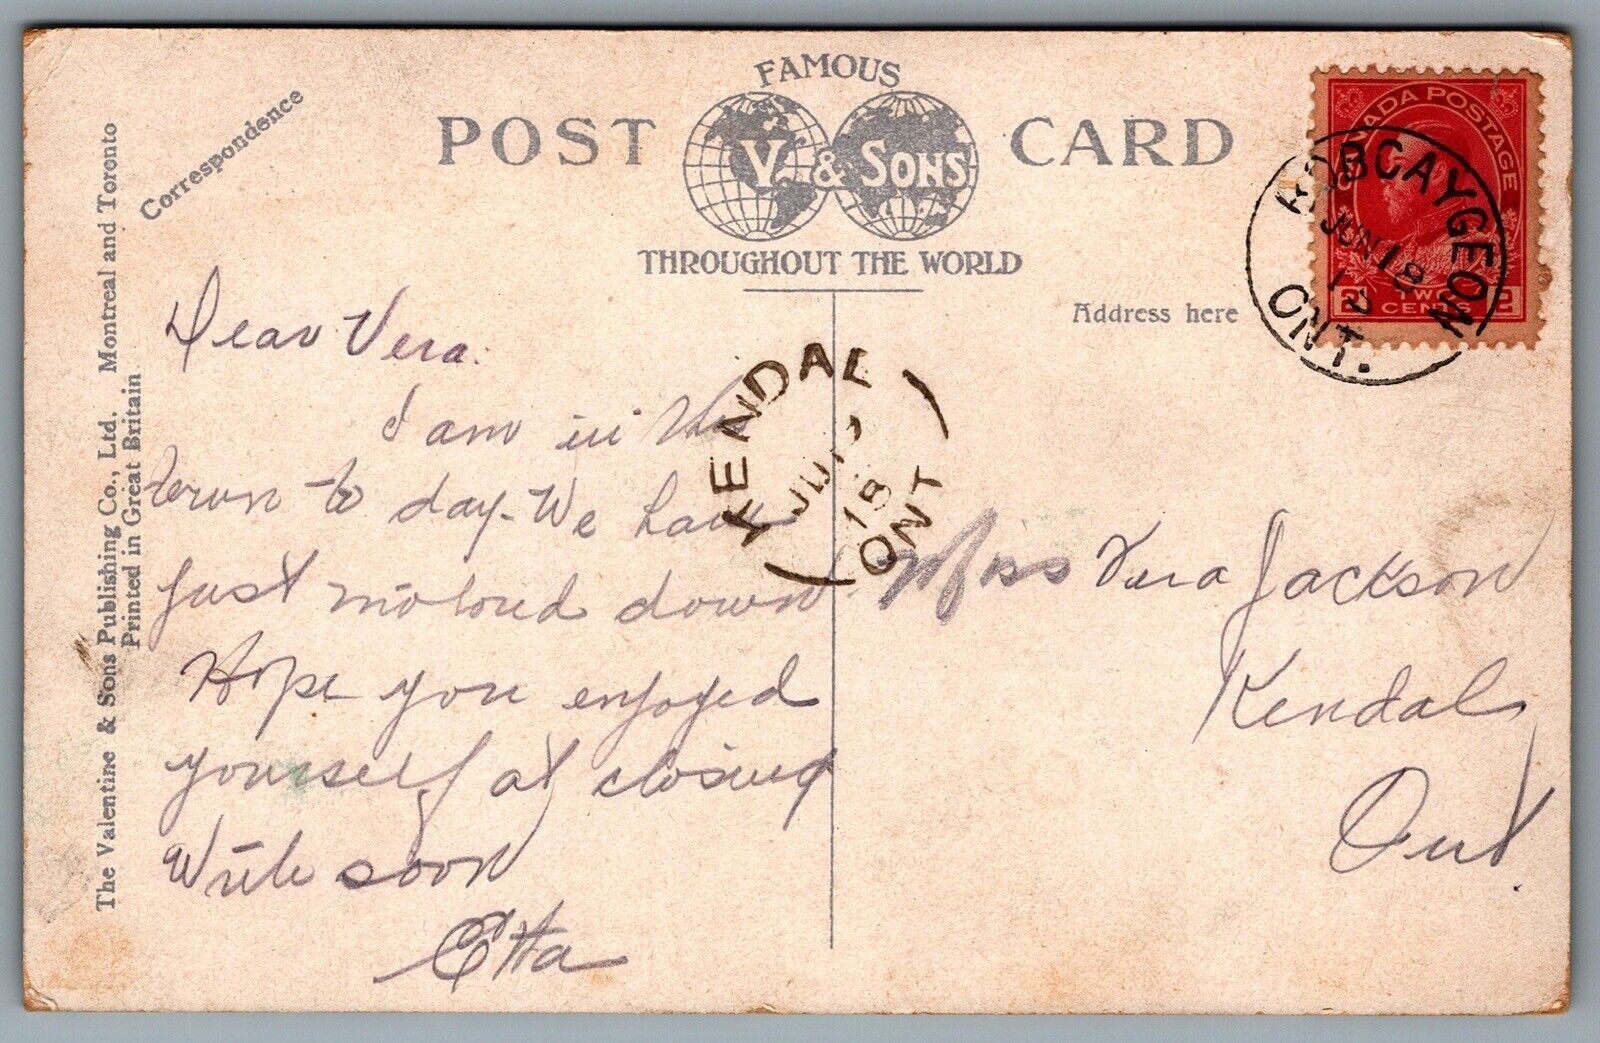 FAMOUS
POST CARD
V. & SONS
THROUGHOUT THE WORLD
Correspondence
The Valentine & Sons Publishing Co., Ltd. Montreal and Toronto
Printed in Great Britain
Address here
CANADA POSTAGE
2 TWO CENTS 2
BOBCAYGEON
JUN 18
12
ONT.
KENDAL
JU
18
ONT
Dear Vera:
I am in this
town to day. We have
just motored down
Hope you enjoyed
yourself at closing
Write soon
Etta
Miss Vera Jackson
Kendal
Ont.